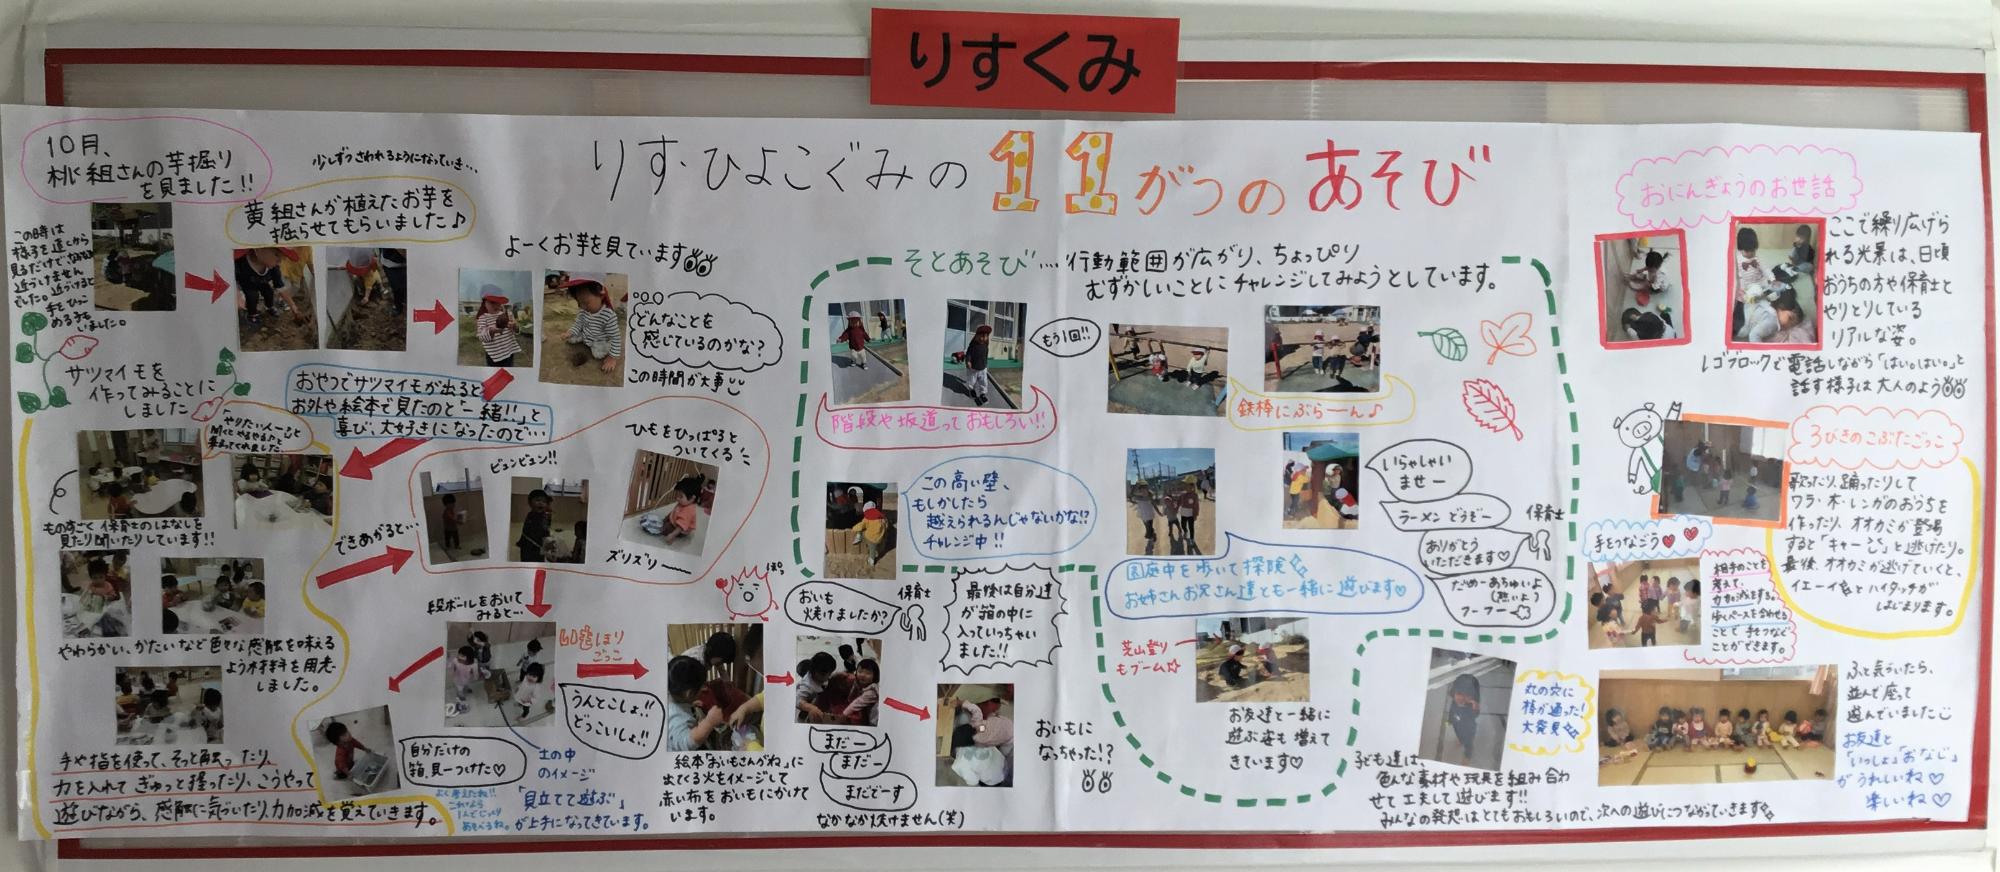 りすくみ
りす・ひよこぐみの11がつのあそび
10月、
桃組さんの芋掘り
を見ました!!
この時は
様子を遠くから
見るだけで
近づけません
でした。近づけると
手をひっこ
める子も
いました。
少しずつさわれるようになっていき…
黄組さんが植えたお芋を
掘らせてもらいました♪
よーくお芋を見ています
どんなことを
感じているのかな?
この時間が大事
おやつでサツマイモが出ると
お外や絵本で見たのと「一緒!!」と
喜び、大好きになったので…
サツマイモを
作ってみることに
しました
「やりたい人〜」と
聞くとやるやる♪と
集まってくれました。
ものすごく保育士のはなしを
見たり聞いたりしています!!
やわらかい、かたいなど色々な感触を味える
よう材料を用意
しました。
手や指を使って、そっと触ったり、
力を入れてぎゅっと握ったり、こうやって
遊びながら、感触に気づいたり力加減を覚えていきます。
できあがると…
ビュンビュン!!
ひもをひっぱると
ついてくる
ズリズリー
段ボールをおいて
みると…
いもほり
ごっこ
うんとこしょ!!
どっこいしょ!!
自分だけの
箱、見〜つけた♡
よく考えたね!!
これなら
1人でじっくり
あそべるね。
土の中
のイメージ
「見立てて遊ぶ」
が上手になってきています。
ぼっ
絵本「おいもさんがね」に
出てくる火をイメージして
赤い布をおいもにかけて
います。
おいも
焼けましたか?
保育士
まだー
まだー
まだでーす
なかなか焼けません(笑)
最後は自分達
が箱の中に
入っていっちゃい
ました!!
おいもに
なっちゃった!?
そとあそび…行動範囲が広がり、ちょっぴり
むずかしいことにチャレンジしてみようとしています。
もう1回!!
階段や坂道っておもしろい!!
鉄棒にぶらーん♪
この高い壁、
もしかしたら
越えられるんじゃないかな!?
チャレンジ中!!
園庭中を歩いて探険
お姉さんお兄さん達とも一緒に遊びます♡
いらっしゃい
ませー
ラーメン どうぞー
保育士
ありがとう
いただきます♡
だめーあちゅいよ
(熱いよう
フーフー
芝山登り
もブーム☆
お友達と一緒に
遊ぶ姿も増えて
きています♡
丸の穴に
棒が通った!
大発見
子ども達は、
色んな素材や玩具を組み合わ
せて工夫して遊びます!!
みんなの発想はとてもおもしろいので、次への遊びにつながっていきます
おにんぎょうのお世話
ここで繰り広げら
れる光景は、日頃
おうちの方や保育士と
やりとりしている
リアルな姿。
レゴブロックで電話しながら「はい。はい。」と
話す様子は大人のよう
3びきのこぶたごっこ
歌ったり、踊ったりして
ワラ・木・レンガのおうちを
作ったり、オオカミが登場
すると「キャー」と逃げたり。
最後、オオカミが逃げていくと、
イエーイとハイタッチが
はじまります。
手をつなごう♥♥
相手のことを
考えて、
力加減をする。
歩くペースを合わせる
ことで手をつなぐ
ことができます。
ふと気づいたら、
並んで座って
遊んでいました
お友達と
「いっしょ」「おなじ」
がうれしいね♡
楽しいね♡